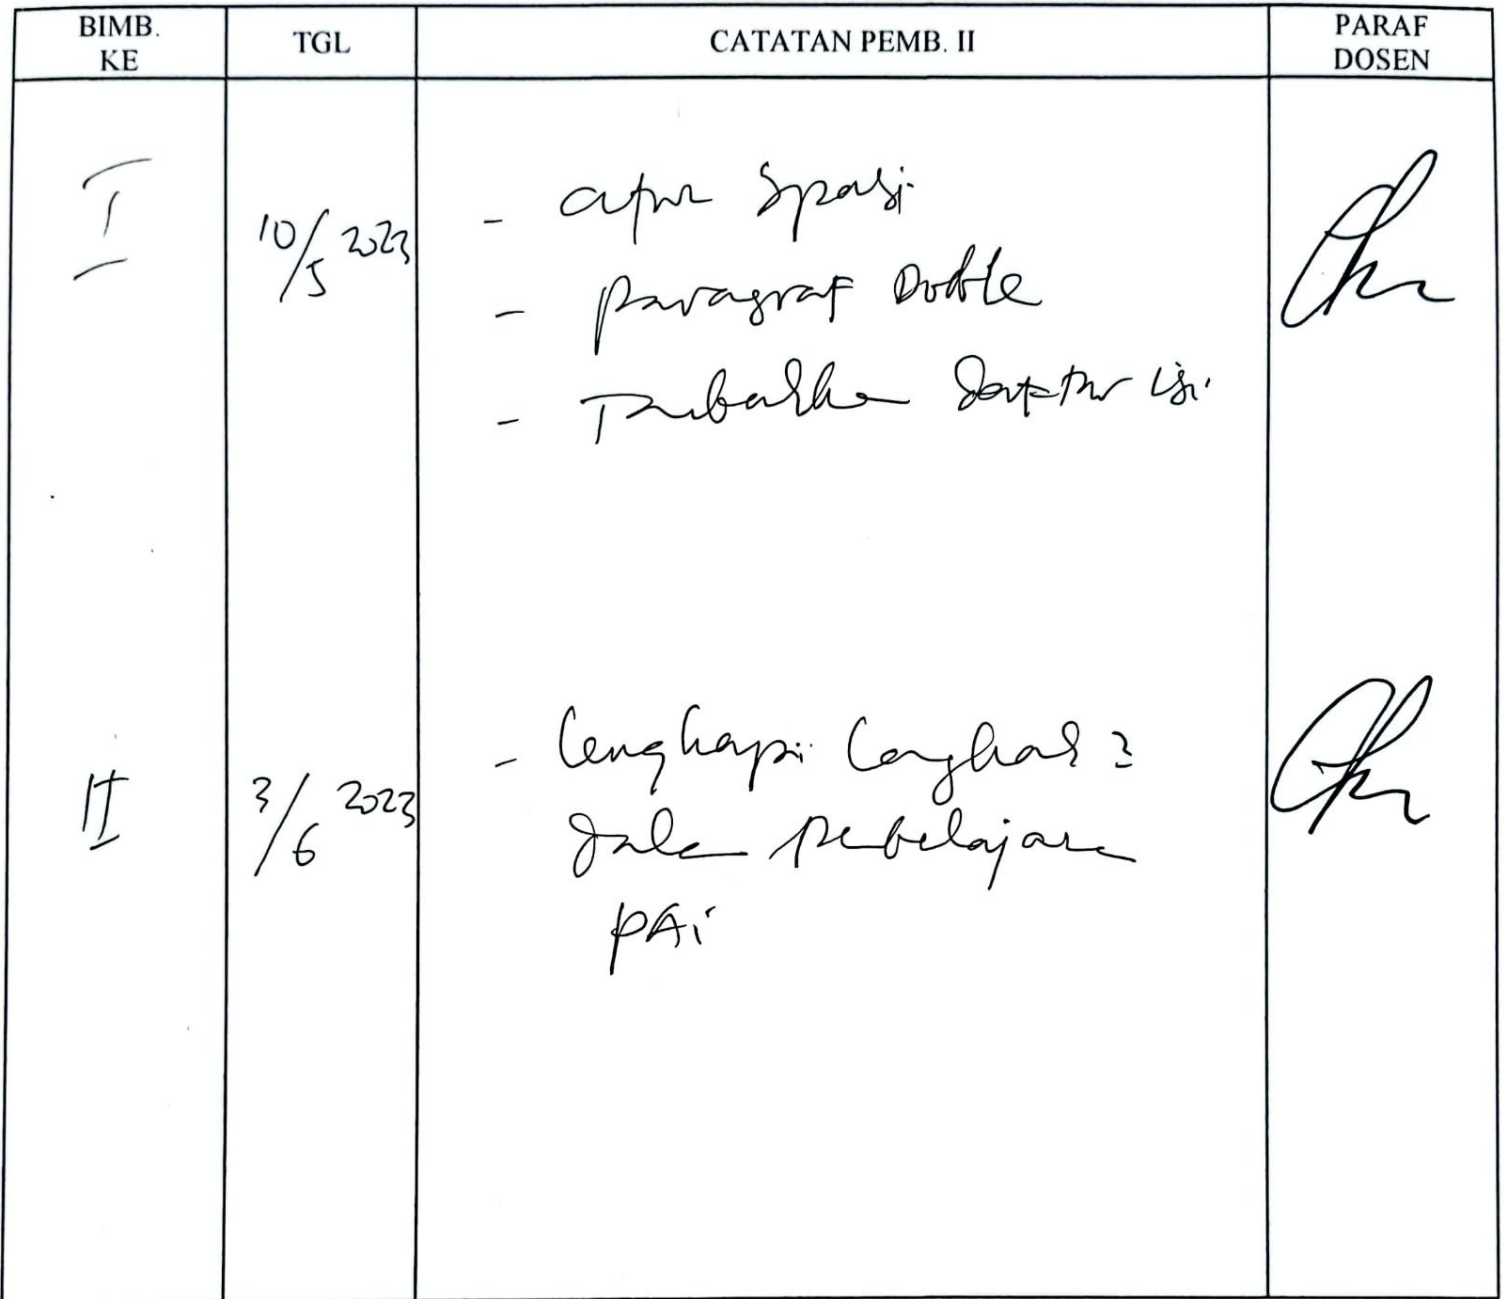 BIMB. KE
TGL
CATATAN PEMB. II
PARAF DOSEN
I
10/5 2023
- atur spasi
- paragraf Doble
- Tambahkan daftar isi
II
3/6 2023
- lengkapi langkah 2
dalam pembelajaran
PAi